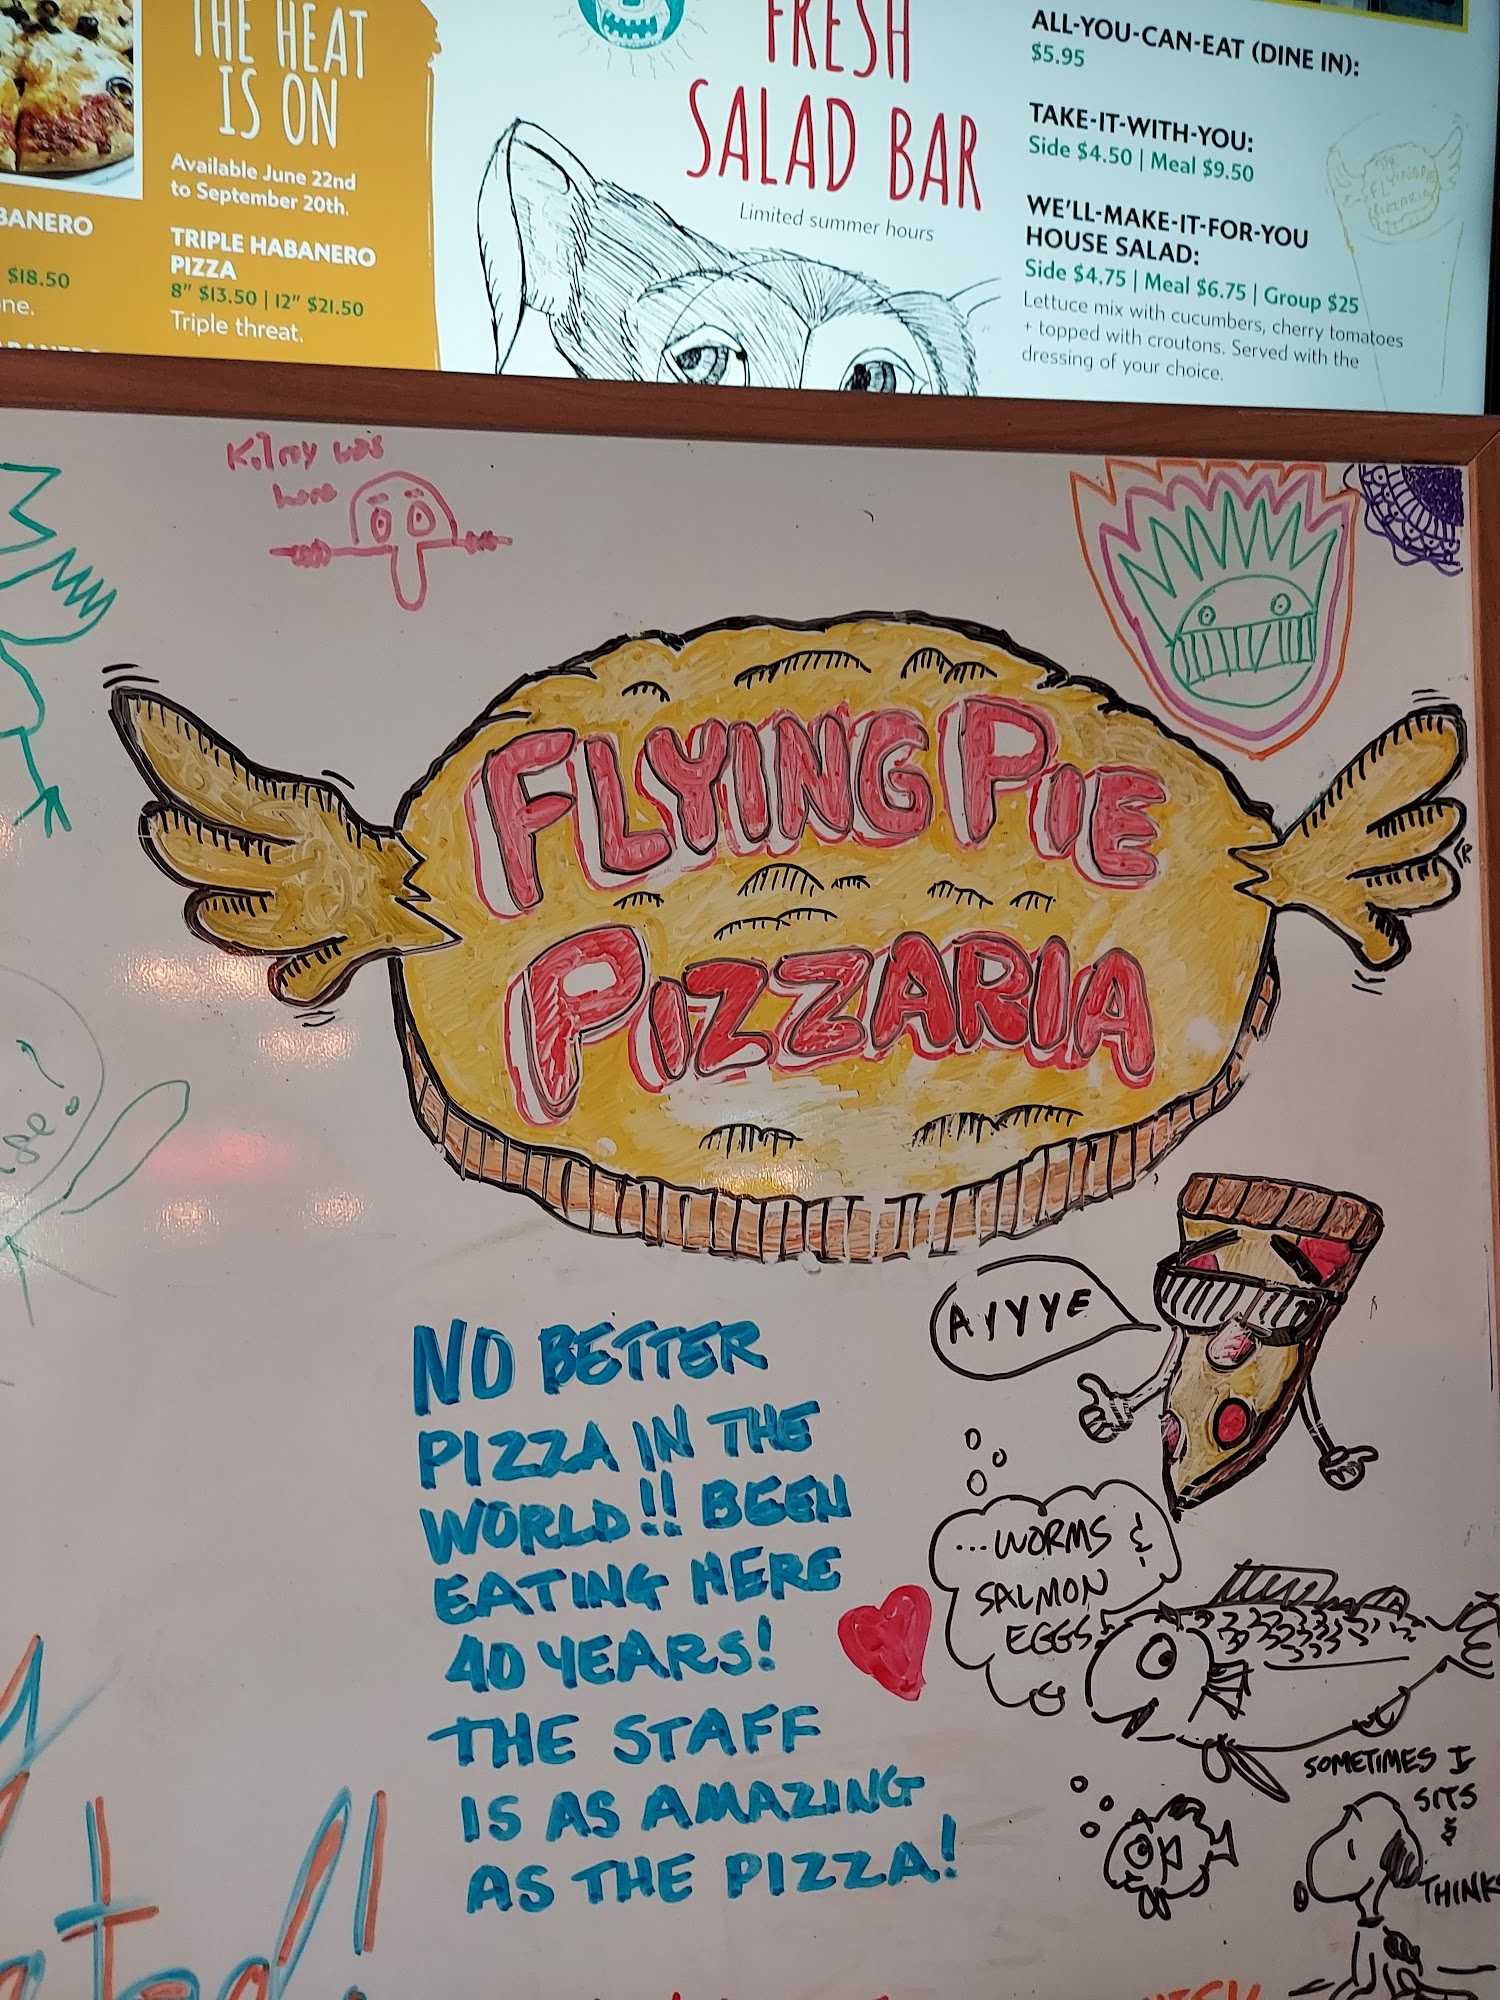 THE HEAT
IS ON
Available June 22nd
to September 20th.
BANERO
$18.50
ne.
TRIPLE HABANERO
PIZZA
8" $13.50 | 12" $21.50
Triple threat.
FRESH
SALAD BAR
Limited summer hours
ALL-YOU-CAN-EAT (DINE IN):
$5.95
TAKE-IT-WITH-YOU:
Side $4.50 | Meal $9.50
WE'LL-MAKE-IT-FOR-YOU
HOUSE SALAD:
Side $4.75 | Meal $6.75 | Group $25
Lettuce mix with cucumbers, cherry tomatoes
+ topped with croutons. Served with the
dressing of your choice.
FLYING PIE
PIZZARIA
Kilroy was
here
FLYING PIE
PIZZARIA
AYYYE
NO BETTER
PIZZA IN THE
WORLD!! BEEN
EATING HERE
40 YEARS!
THE STAFF
IS AS AMAZING
AS THE PIZZA!
...WORMS &
SALMON
EGGS
SOMETIMES I
SITS
&
THINKS